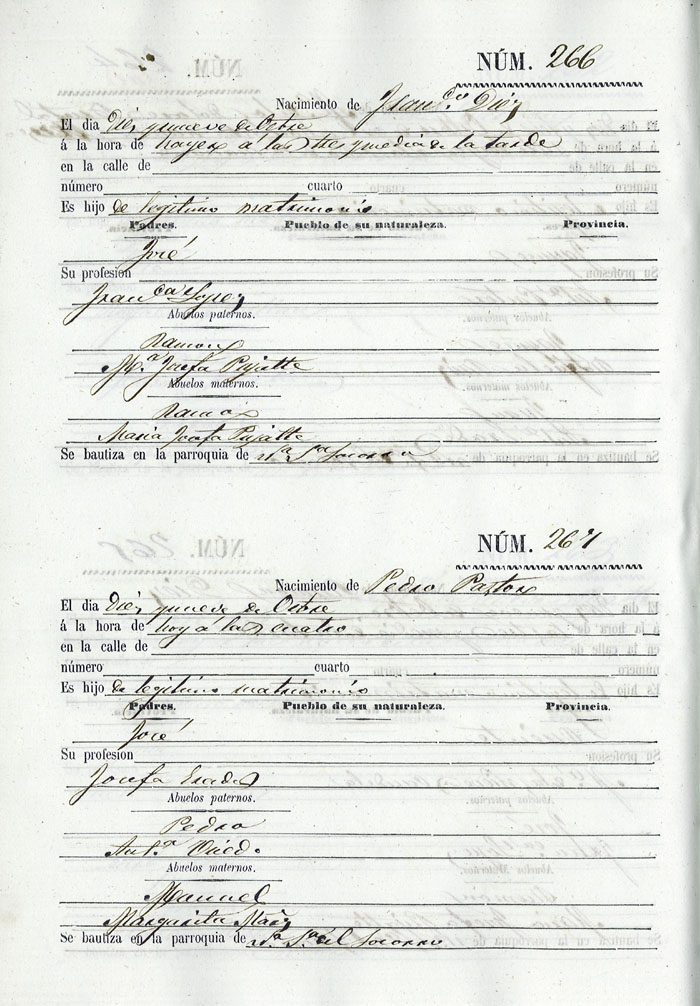 NÚM. 266
Nacimiento de Fran.co Diez
El dia Diez y nueve de Octbre
á la hora de hayer á las tres y media de la tarde
en la calle de
número cuarto
Es hijo de legitimo matrimonio
Padres. Pueblo de su naturaleza. Provincia.
José
Su profesion
Fran.ca Lopez
Abuelos paternos.
Ramon
M.a Josefa Pujalte
Abuelos maternos.
Ramon
Maria Josefa Pujalte
Se bautiza en la parroquia de N.a S.a Socorro
NÚM. 267
Nacimiento de Pedro Pastor
El dia Diez y nueve de Octbre
á la hora de hoy á las cuatro
en la calle de
número cuarto
Es hijo de legitimo matrimonio
Padres. Pueblo de su naturaleza. Provincia.
José
Su profesion
Josefa
Abuelos paternos.
Pedro
Ant.a
Abuelos maternos.
Manuel
Margarita
Se bautiza en la parroquia de N.a S.a del Socorro